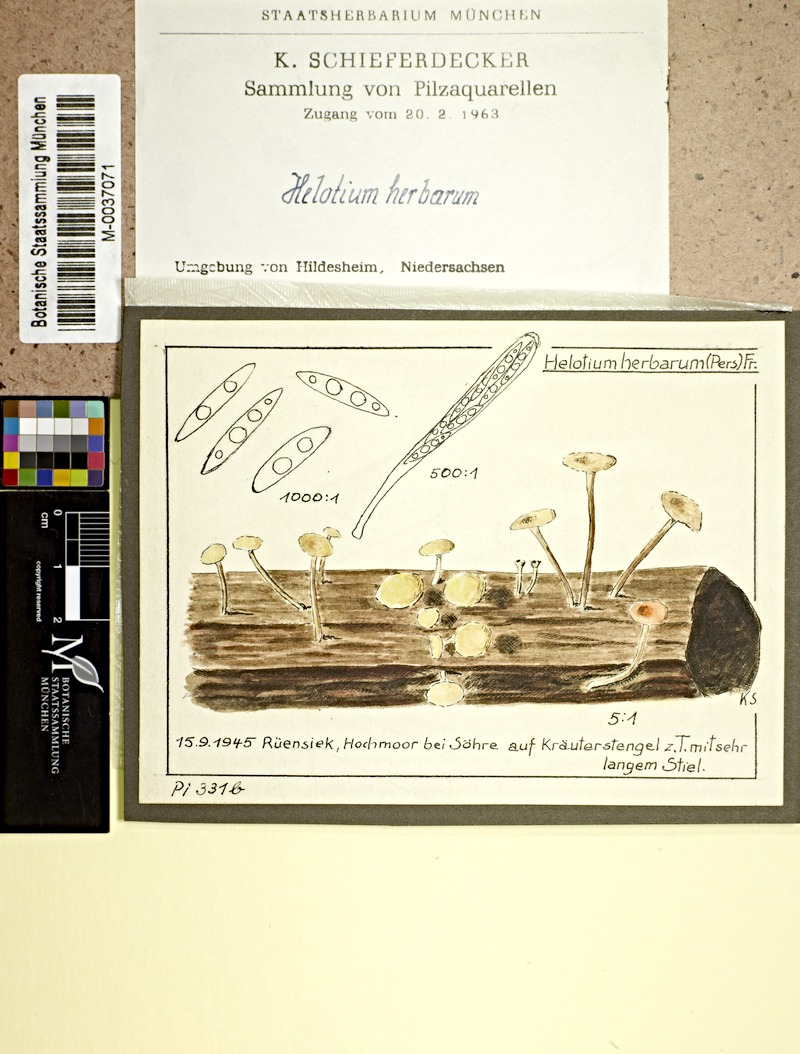 STAATSHERBARIUM MÜNCHEN
K. SCHIEFERDECKER
Sammlung von Pilzaquarellen
Zugang vom 20. 2. 1963
Helotium herbarum
Umgebung von Hildesheim, Niedersachsen
Botanische Staatssammlung München
M-0037071
Helotium herbarum (Pers) Fr.
1000:1
500:1
KS
5:1
15.9.1945 Rüensiek, Hochmoor bei Söhre auf Kräuterstengel z.T. mit sehr
langem Stiel.
Pi 331b
0
1
2
cm
copyright reserved
M
BOTANISCHE
STAATSSAMMLUNG
MÜNCHEN